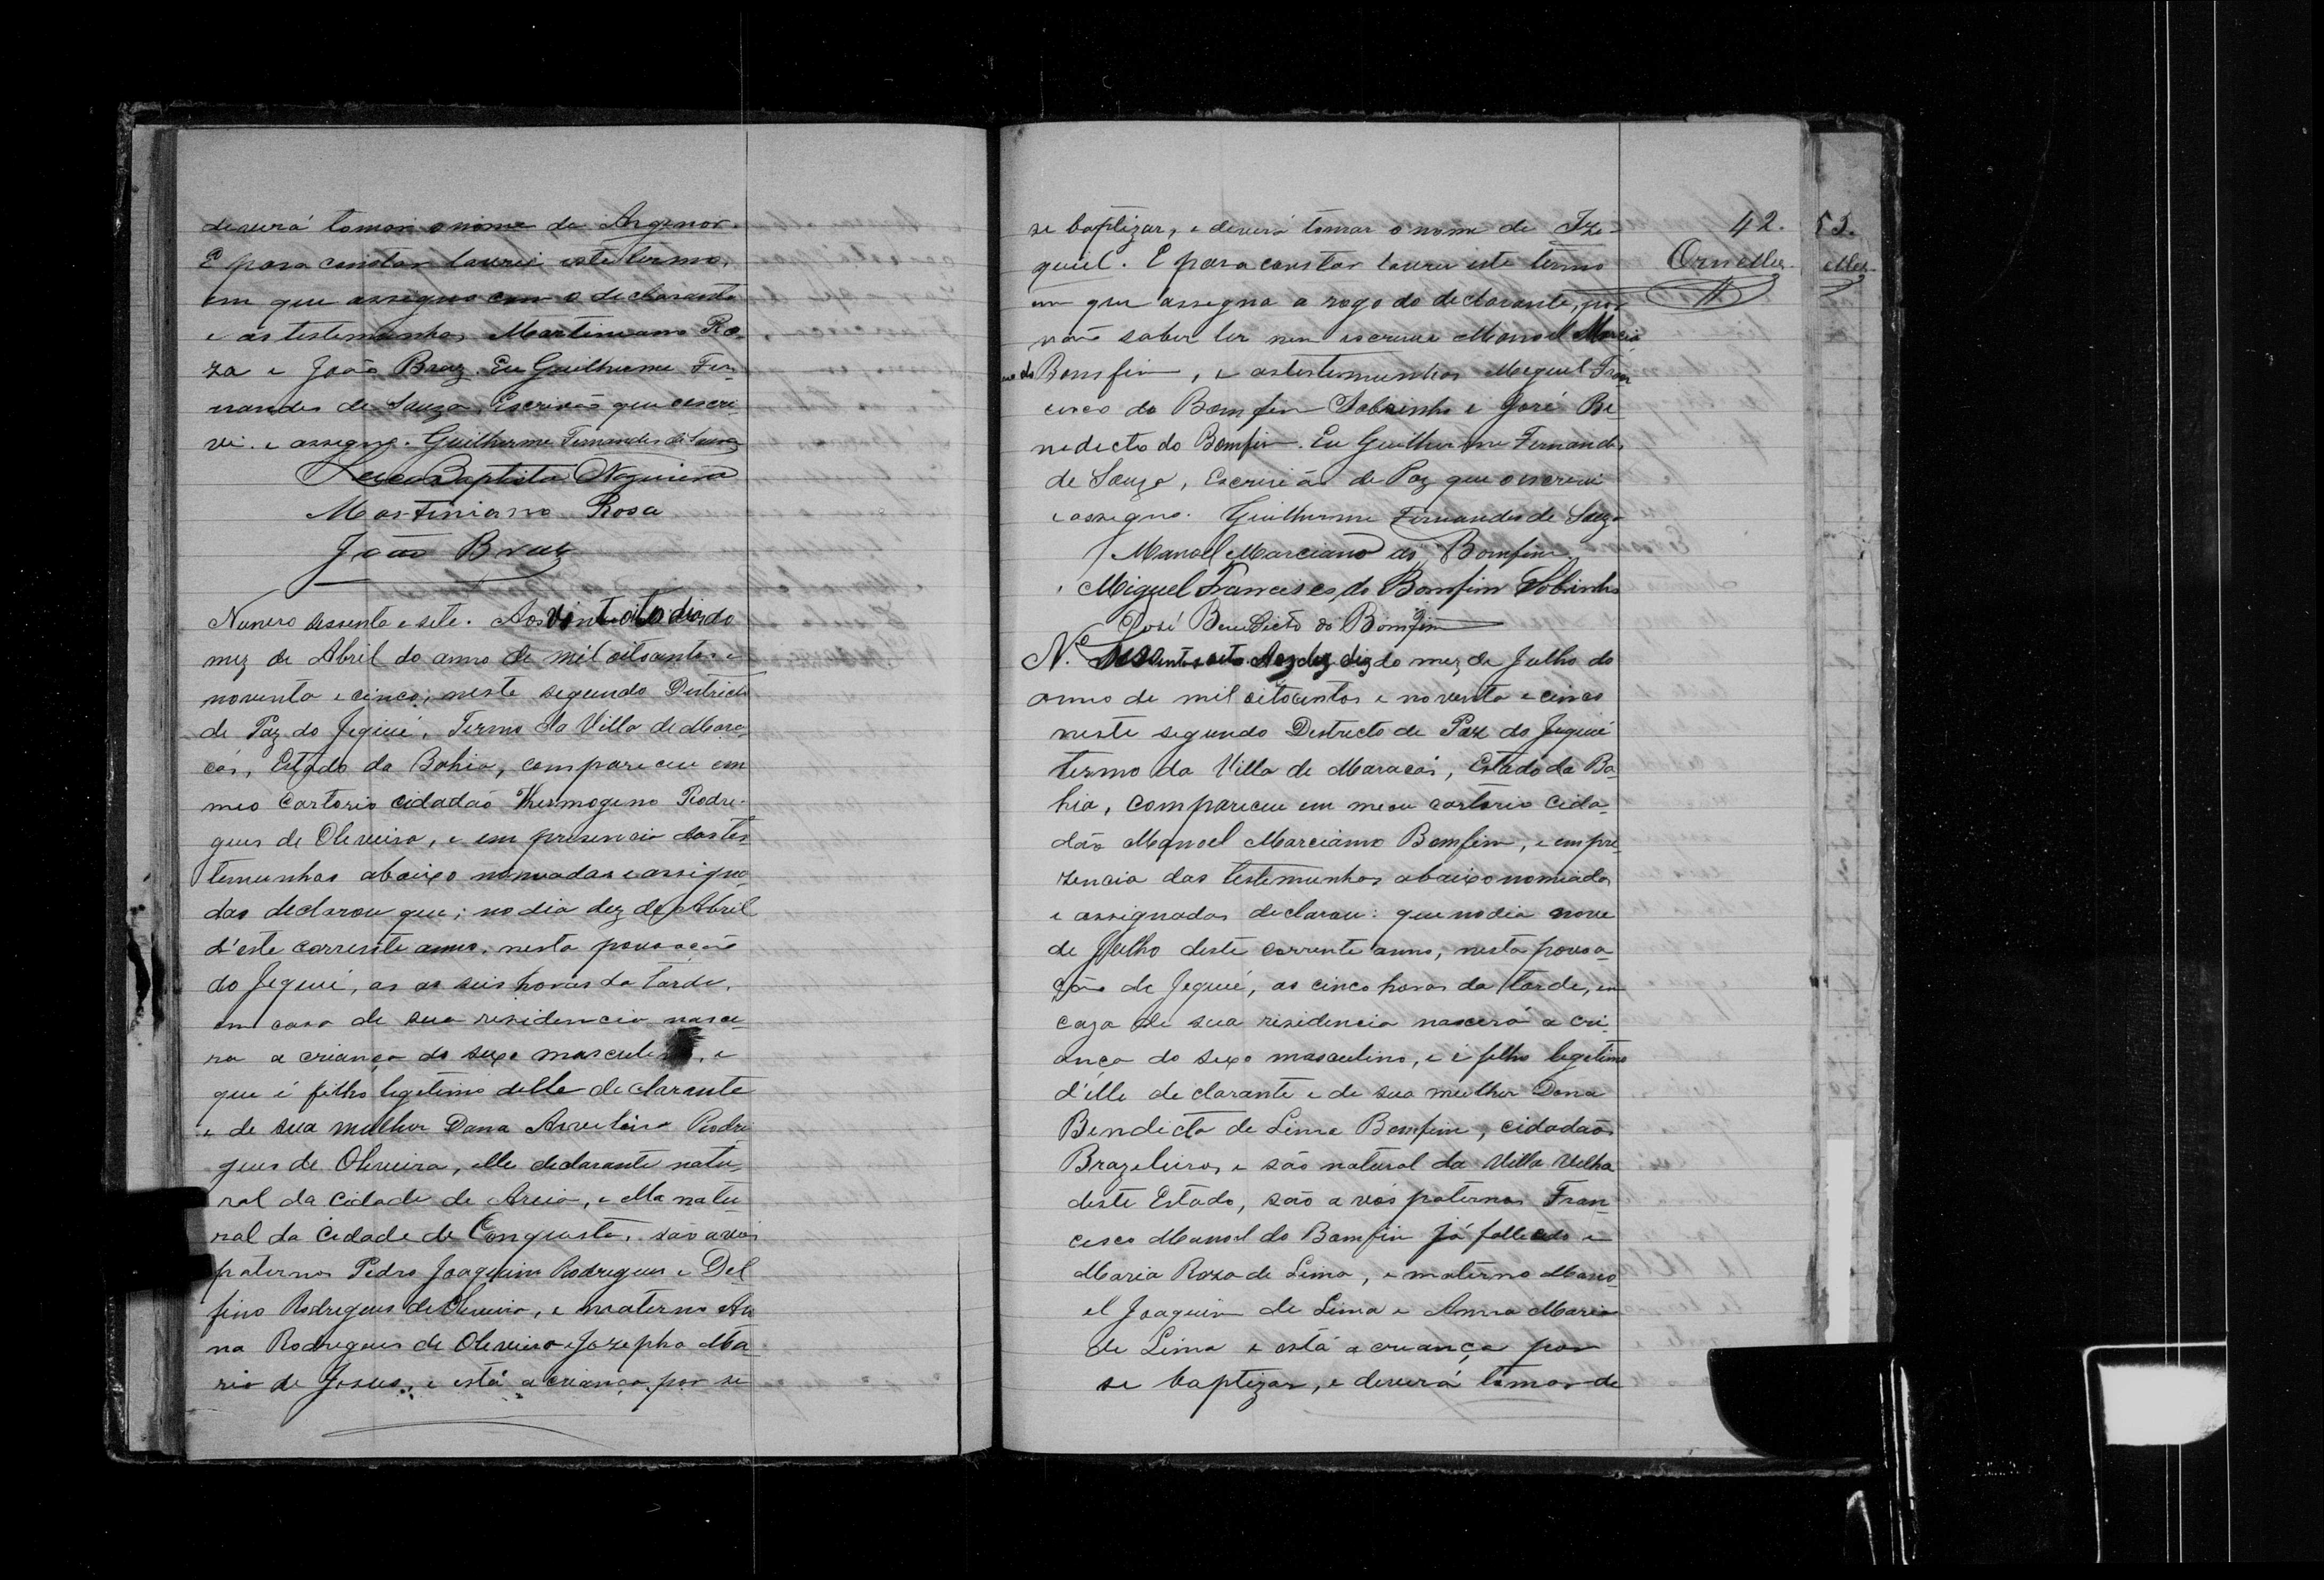 deverá tomar o nome de Argenor.
E para constar lavrei este termo,
em que assigno com o declarante
e as testemunhas Martiniano Ro-
za e João Braz. Eu Guilherme Fer-
nandes de Souza, Escrivão que escre-
vi e assigno. Guilherme Fernandes de Souza
Baptista Nogueira
Martiniano Rosa
João Braz
Numero sessenta e sete. Aos vinte oito dias do
mez de Abril do anno de mil oitocentos e
noventa e cinco; neste segundo Districto
de Paz do Jequié, Termo da Villa de Mara-
cás, Estado da Bahia, compareceu em
meo Cartorio cidadão Rodri-
gues de Oliveira, e em presencia das tes-
temunhas abaixo nomeadas e assigna-
das declarou que; no dia dez de Abril
d'este corrente anno, nesta povoação
do Jequié, as as seis horas da tarde,
em casa de sua residencia nasce-
ra a criança do sexo masculino, e
que é filho legitimo delle declarante
e de sua mulher Dona Rodri-
gues de Oliveira, elle declarante natu-
ral da cidade de Areia, e Ella natu-
ral da Cidade de Conquista, são avós
paternos Pedro Joaquim Rodrigues e Del-
fino Rodrigues de Oliveira, e materno An-
na Rodrigues de Oliveira e Jozepha Ma-
ria de Jesus, e está a criança por se
42.
Ornellas
53.
ellas
se baptizar, e deverá tomar o nome de Ize-
quiel. E para constar lavrei este termo
em que assigna a rogo do declarante, por
não saber ler nem escrever Manoel Marcia
no do Bomfim, e as testemunhas Miguel Fran
cisco do Bomfim Sobrinho e José Be-
nedicto do Bomfim. Eu Guilherme Fernandes
de Souza, Escrivão de Paz que o escrevi
e assigno. Guilherme Fernandes de Souza
Manoel Marciano do Bomfim
Miguel Francisco do Bomfim Sobrinho
José Benedicto do Bomfim
N.º Sessenta oito. Aos dez dias do mez de Julho do
anno de mil oitocentos e noventa e cinco
neste segundo Destricto de Paz do Jequié
termo da Villa de Maracás, Estado da Ba-
hia, compareceu em meu cartorio cida-
dão Manoel Marciano Bomfim, e em pre-
zencia das testemunhas abaixo nomiadas
e assignadas declarou: que no dia nove
de Julho deste corrente anno, nesta povoa-
ção de Jequié, as cinco horas da tarde, em
caza de sua residencia nascerá a cri-
ança do sexo masculino, e é filho legitimo
d'elle declarante e de sua mulher Dona
Bendicta de Lima Bomfim, cidadãos
Brazileiros e são natural da Villa Velha
deste Estado, são avós paternos Fran-
cisco Manoel do Bomfim já fallecido e
Maria Roza de Lima, e materno Mano-
el Joaquim de Lima e Anna Maria
de Lima e está a criança por
se baptizar, e deverá tomar de